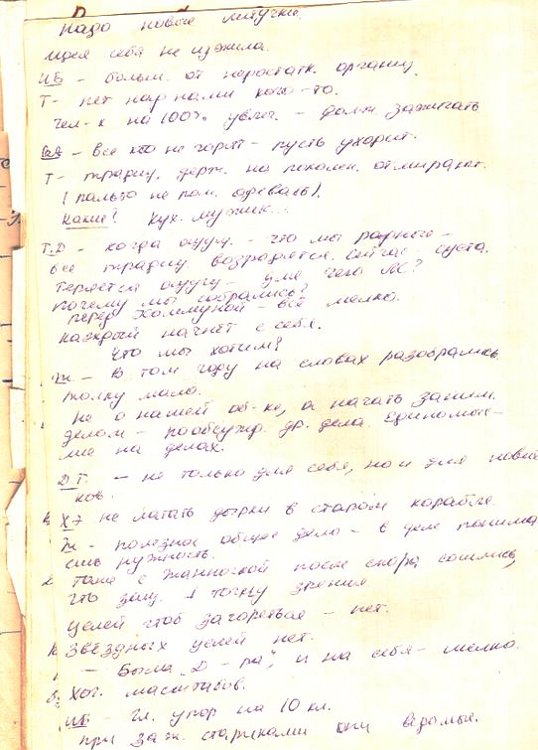 Надо новые
идея себя не изжила.
ИБ - больш. от недостатк. организ.
Т - нет над нами кого-то.
чел-к на 100% увлеч. - должн. зажигать
- все кто не горят - пусть уходит.
Т - традиц. держ. на поколен. отмирают.
(пальто не пом. одевать).
Какие? Кух. мужик...
Т.Д - когда ощущ. - что мы
все традиц. возродятся. Сейчас - суета.
Теряется ощущ. - для чего ЛС?
почему мы собрались?
перед Коммуной - всё мелко.
каждый начнёт с себя.
Что мы хотим?
- В том году на словах разобрались
толку мало.
Не о нашей об-ке, а начать заним.
делом - пообсужд. др. дела. Единомыс-
лие на делах.
Д.Т. - не только для себя, но и для нович-
ков.
не латать дырки в старом корабле.
- полезное общее дело - в деле
нужность.
Тоже с после спора сошлись,
что 1 точку зрения
целей чтоб загореться - нет.
Звёздных целей нет.
- Была „Д - на", и на себя - мелко.
Хот. масштабов.
ИБ - гл. упор на 10 кл.
при стариками они ведомые.